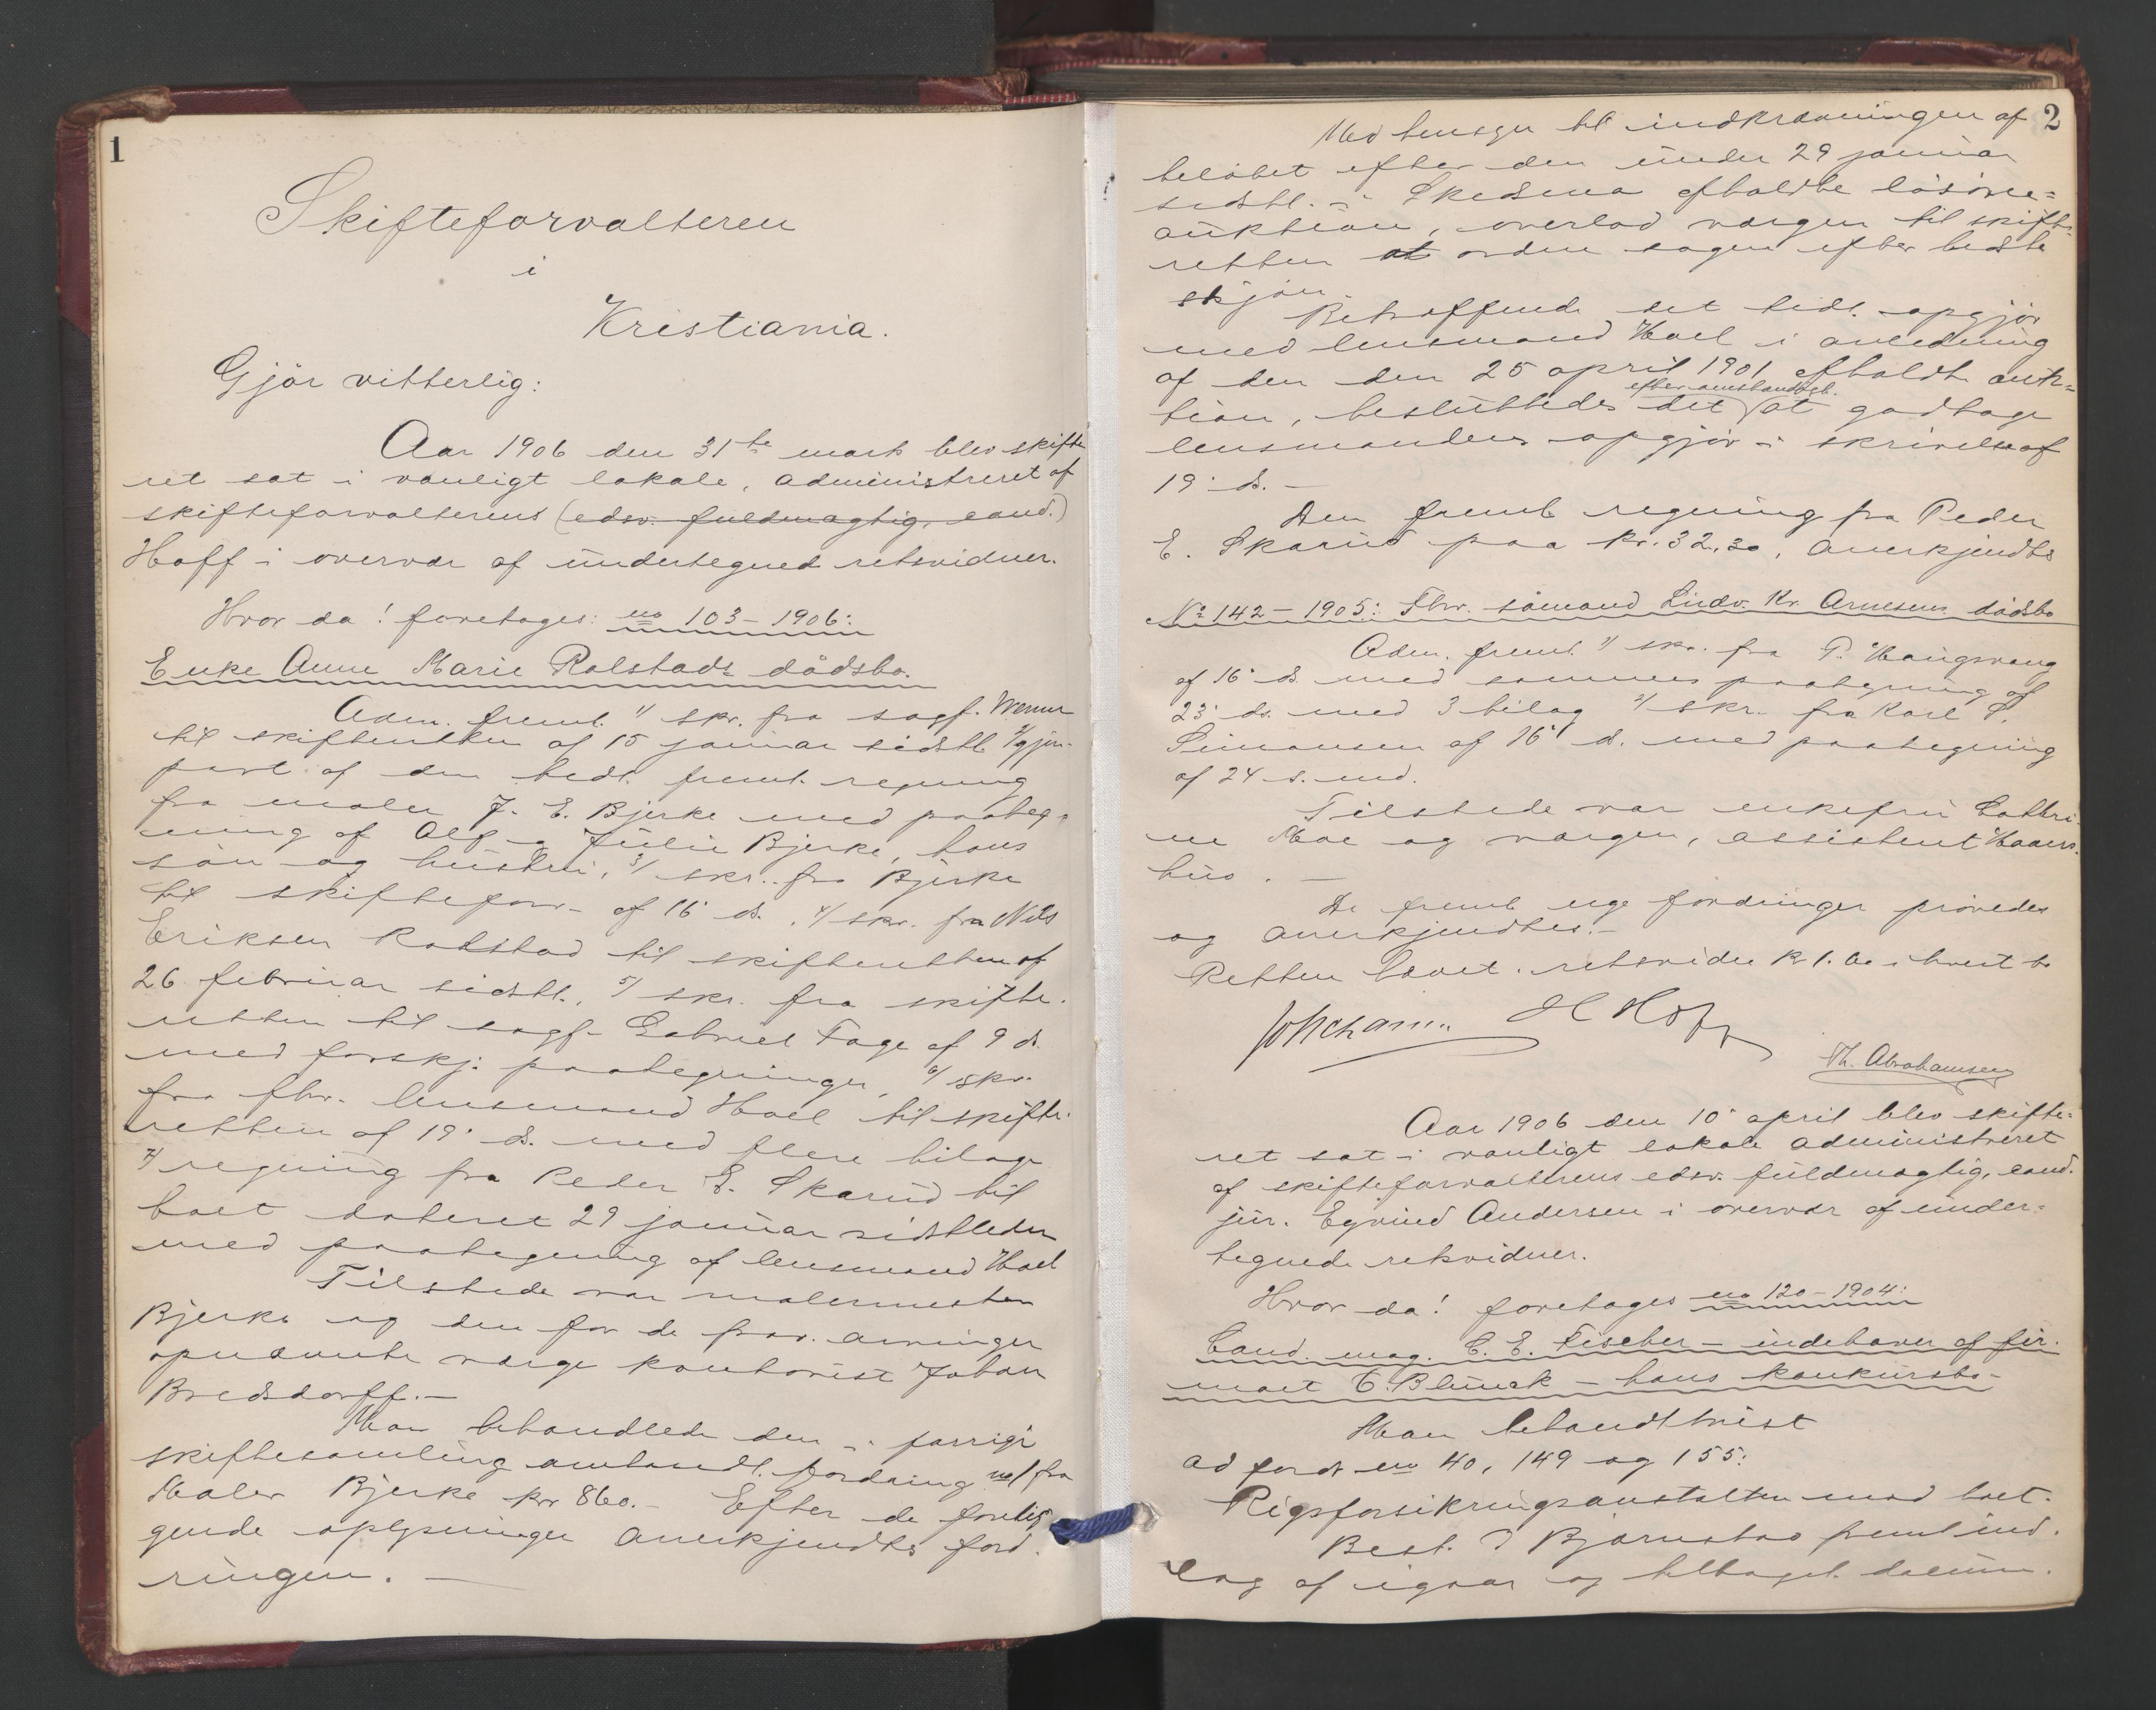 1
Skifteforvalteren
i
Kristiania.
Gjör vitterlig:
Aar 1906 den 31te marts blev skifte
ret sat i vanligt lokale, administreret af
skifteforvalterens (edsv. fuldmægtig, cand.)
Hoff i overvær af undertegnede retsvidner.
Hvor da! foretages: no 103-1906:
Enke Anne Marie Rolstads dödsbo.
Adm. freml. 1/ skr. fra sagf.
til skifteretten af 15 januar sidstl. 2/ gjen-
part af den tidl. freml. regning
fra maler J. E. Bjerke med paateg-
ning af Alf og Julie Bjerke, hans
sön og hustru, 3/ skr. fra Bjerke
til skifteforv. af 16' ds. 4/ skr. fra Nils
Eriksen Rolstad til skifteretten af
26 februar sidstl., 5/ skr. fra skifte-
retten til sagf. Gabriel Fage af 9 ds.
med forskj. paategninger, 6/ skr.
fra fhv. lensmand Hoel til skifte-
retten af 19' ds. med flere bilage
7/ regning fra Peder E. Skarud til
boet dateret 29 januar sidstleden
med paategning af lensmand Hoel
Tilstede var malermester
Bjerke og den for de frav. arvinger
opnævnte værge kontorist Johan
Bredsdorff.-
Man behandlede den i forrige
skiftesamling omhandl. fordring no 1 fra
Maler Bjerke kr 860.- Efter de forelig-
gende oplysninger anerkjendtes ford-
ringen. -
2
Med hensyn til indkrævningen af
belöbet efter den under 29 januar
sidstl. i Skedsmo afholdte lösöre=
auktion, overlod værgen til skifte-
retten at ordne sagen efter bedste
skjön.
Betræffende det tidl. opgjör
med lensmand Hoel i anledning
af den den 25 april 1901 afholdte auk=
efter omstændigh.
tion, besluttedes det at godtage
lensmandens opgjör i skrivelse af
19' ds. -
Den freml. regning fra Peder
E. Skarud paa kr. 32,30, anerkjendtes
No 142-1905: Fhv. sömand Ludv. Kr. Arnesens dödsbo
Adm. freml. 1/ skr. fra P. Haugsvang
af 16' ds. med sammes paategning af
23' ds. med 3 bilag 2/ skr. fra Karl S.
Simonsen af 16' ds. med paategning
af 24 s. md.
Tilstede var enkefru Cathri-
ne Moe og værgen, assistent
De freml. nye fordringer prövedes
og anerkjendtes.-
Retten hævet. retsvidn kr 1.00 i hvert bo
H Hoff
Th. Abrahamsen
Aar 1906 den 10' april blev skifte=
ret sat i vanligt lokale administreret
af skifteforvalterens edsv. fuldmægtig, cand.
jur. Eyvind Andersen i overvær af under=
tegnede retsvidner.
Hvor da! foretages no 120-1904:
Cand. mag. C. E. Fischer - indehaver af fir-
maet C. Blunck - hans konkursbo-
Man behandl. tvist
ad fordr. no 40, 149 og 155:
Rigsforsikringsanstalten mod boet.
Best. O Bjørnstad freml. ind-
læg af igaar og